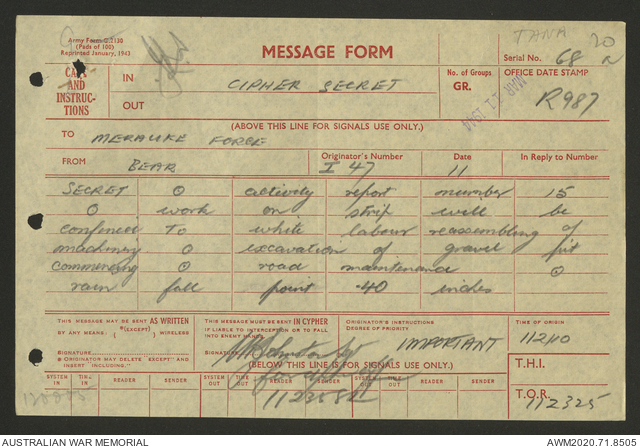 Army Form C.2130
(Pads of 100)
Reprinted January, 1943
MESSAGE FORM
TANA 20
Serial No. 68
CALLS AND INSTRUCTIONS
IN CIPHER SECRET
OUT
No. of Groups GR.
OFFICE DATE STAMP
MAR 11 1944
R987
(ABOVE THIS LINE FOR SIGNALS USE ONLY.)
TO MERAUKE FORCE
FROM BEAR Originator's Number I 47 Date 11 In Reply to Number
SECRET O activity report number 15
O work on strip will be
confined TO white labour reassembling of
machinery O excavation of gravel pit
commencing O road maintenance O
rain fall point 40 inches
THIS MESSAGE MAY BE SENT AS WRITTEN
BY ANY MEANS (EXCEPT) WIRELESS
SIGNATURE
ORIGINATOR MAY DELETE EXCEPT" AND INSERT INCLUDING."
THIS MESSAGE MUST BE SENT IN CYPHER
IF LIABLE TO INTERCEPTION OR TO FALL INTO ENEMY HANDS.
SIGNATURE
ORIGINATOR'S INSTRUCTIONS
DEGREE OF PRIORITY
IMPORTANT
TIME OF ORIGIN
11240
T.H.I.
T.O.R. 112325
(BELOW THIS LINE IS FOR SIGNALS USE ONLY.)
SYSTEM IN TIME IN READER SENDER SYSTEM OUT TIME OUT READER SENDER SYSTEM OUT TIME OUT READER SENDER
AUSTRALIAN WAR MEMORIAL
AWM2020.71.8505